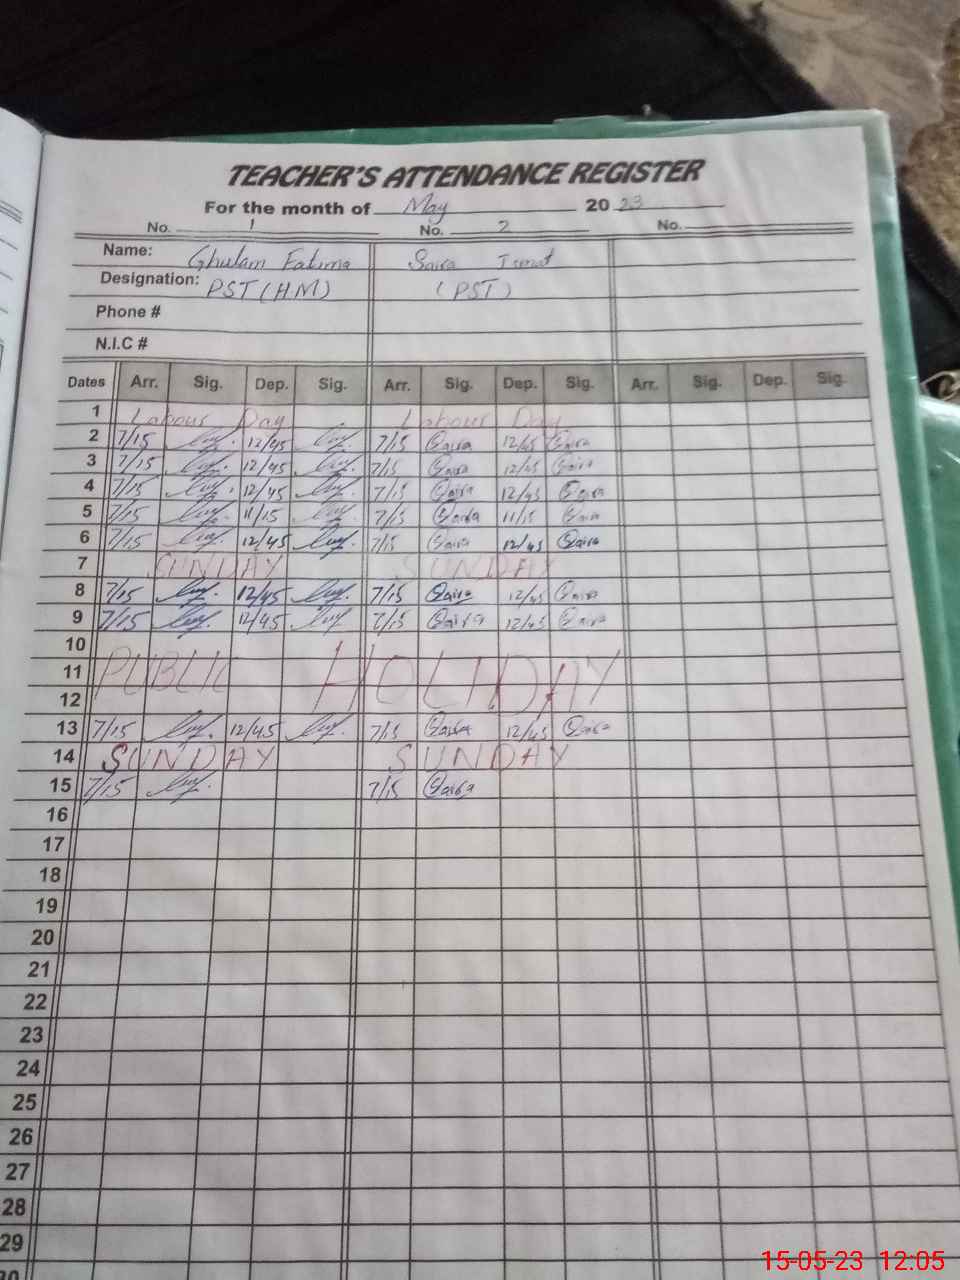 TEACHER'S ATTENDANCE REGISTER
For the month of May 20 23
No. 1 No. 2 No.
Name: Ghulam Fatima Saira
Designation: PST (HM) (PST)
Phone #
N.I.C #
Dates Arr. Sig. Dep. Sig. Arr. Sig. Dep. Sig. Arr. Sig. Dep. Sig.
1 Labour Day Labour Day
2 7/15 12/45 7/15 Saira 12/45 Saira
3 7/15 12/45 7/15 Saira 12/45 Saira
4 7/15 12/45 7/15 Saira 12/45 Saira
5 7/15 11/15 7/15 Saira 11/15 Saira
6 7/15 12/45 7/15 Saira 12/45 Saira
7 SUNDAY SUNDAY
8 7/15 12/45 7/15 Saira 12/45 Saira
9 7/15 12/45 7/15 Saira 12/45 Saira
10
11 PUBLIC HOLIDAY
12
13 7/15 12/45 7/15 Saira 12/45 Saira
14 SUNDAY SUNDAY
15 7/15 7/15 Saira
16
17
18
19
20
21
22
23
24
25
26
27
28
29
30
15-05-23 12:05